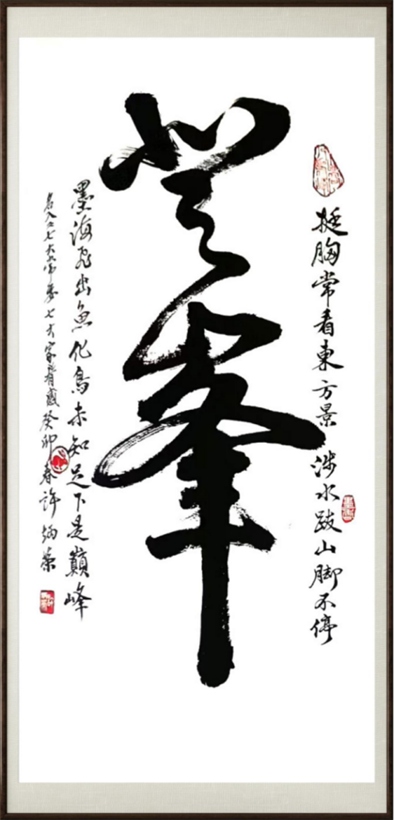 挺胸常看東方景涉水跋山脚不停
登峯
墨海飛出魚化鳥未知足下是巔峰
癸卯春許炳榮